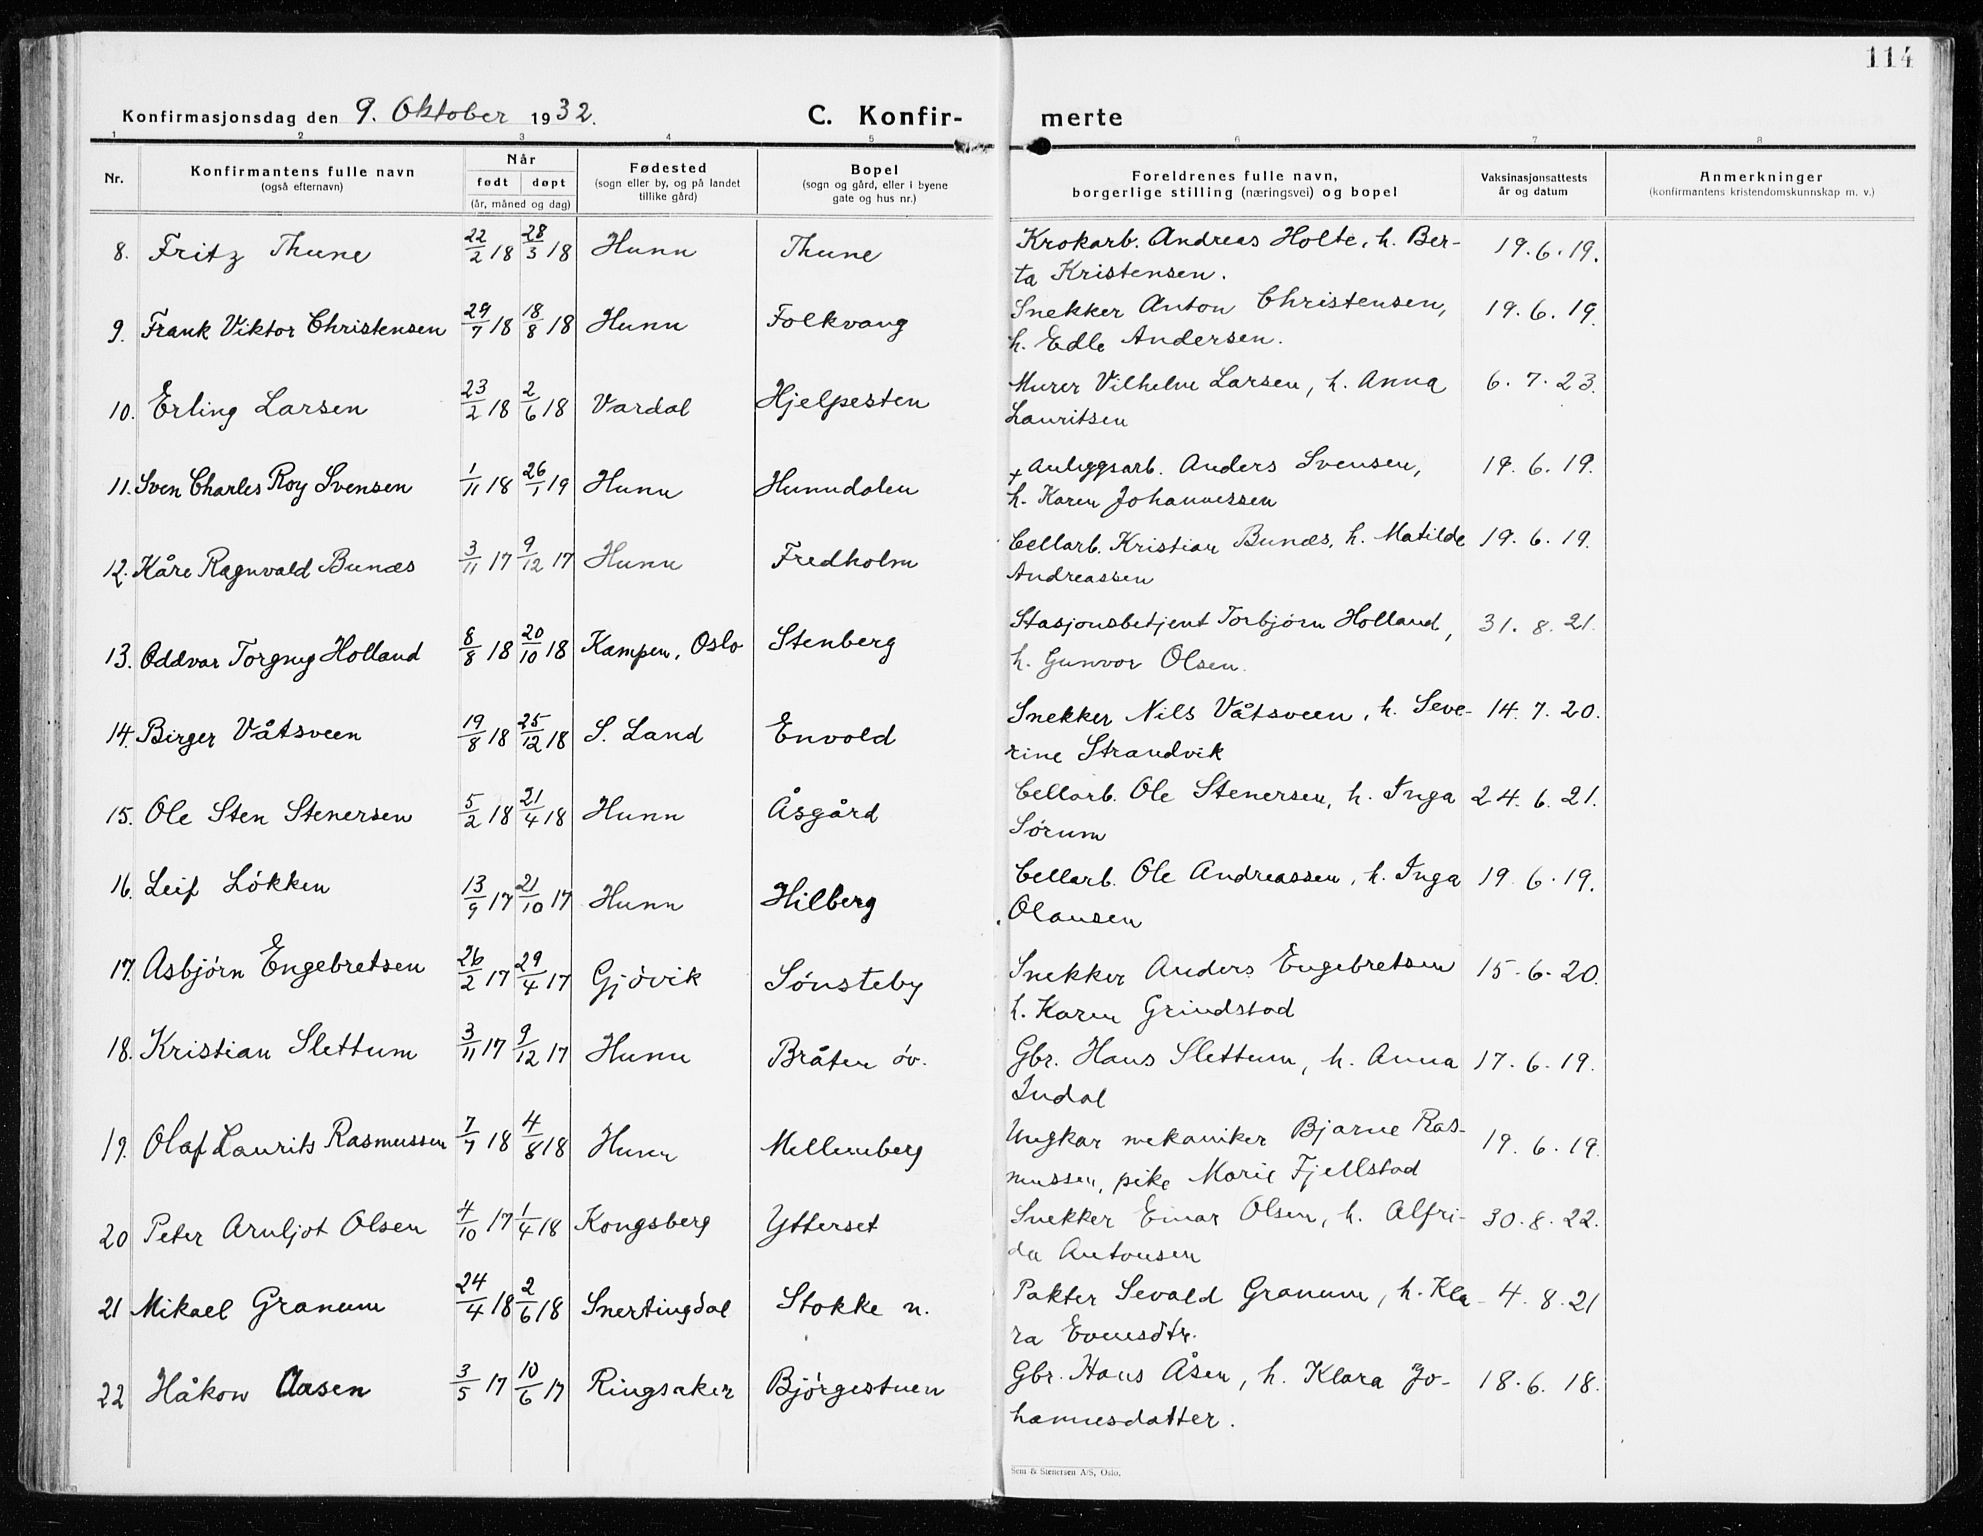 114
Konfirmasjonsdag den 9. Oktober 1932. C. Konfir- merte
1 2 3 4 5 6 7 8
Nr. Konfirmantens fulle navn (også efternavn) Når født døpt (år, måned og dag) Fødested (sogn eller by, og på landet tillike gård) Bopel (sogn og gård, eller i byene gate og hus nr.) Foreldrenes fulle navn, borgerlige stilling (næringsvei) og bopel Vaksinasjonsattests år og datum Anmerkninger (konfirmantens kristendomskunnskap m. v.)
8. Fritz Thune 22/2 18 28/3 18 Hunn Thune Krokarb. Andreas Holte, h. Ber- 19.6.19.
ta Kristensen.
9. Frank Viktor Christensen 29/7 18 18/8 18 Hunn Folkvang Snekker Anton Christensen, 19.6.19.
h. Edle Andersen.
10. Erling Larsen 23/2 18 2/6 18 Vardal Hjelpesten Murer Vilhelm Larsen, h. Anna 6.7.23.
Lauritsen
11. Sven Charles Roy Svensen 1/11 18 26/1 19 Hunn Hunndalen + Anleggsarb. Anders Svensen, 19.6.19.
h. Karen Johannessen
12. Kåre Ragnvald Bunæs 3/11 17 9/12 17 Hunn Fredholm Cellarb. Kristian Bunæs, h. Matilde 19.6.19.
Andreassen
13. Oddvar Torgny Holland 8/8 18 20/10 18 Kampen, Oslo Stenberg Stasjonsbetjent Torbjørn Holland, 31.8.21.
h. Gunvor Olsen.
14. Birger Våtsveen 19/8 18 25/12 18 S. Land Envold Snekker Nils Våtsveen, h. Seve- 14.7.20.
rine Strandvik
15. Ole Sten Stenersen 5/2 18 21/4 18 Hunn Åsgård Cellarb. Ole Stenersen, h. Inga 24.6.21.
Sørum
16. Leif Løkken 13/9 17 21/10 17 Hunn Hilberg Cellarb. Ole Andreassen, h. Inga 19.6.19.
Olausen
17. Asbjørn Engebretsen 26/2 17 29/4 17 Gjøvik Sønsteby Snekker Anders Engebretsen 15.6.20.
h. Karen Grindstad
18. Kristian Slettum 3/11 17 9/12 17 Hunn Bråten øv. Gbr. Hans Slettum, h. Anna 17.6.19.
Indal
19. Olaf Laurits Rasmussen 7/7 18 4/8 18 Hunn Mellemberg Ungkar mekaniker Bjarne Ras- 19.6.19.
mussen, pike Marie Fjellstad
20 Peter Arnljot Olsen 4/10 17 1/4 18 Kongsberg Ytterset Snekker Einar Olsen, h. Alfri- 30.8.22.
da Antonsen
21 Mikael Granum 24/4 18 2/6 18 Snertingdal Stokke n. Pakter Sevald Granum, h. Kla- 4.8.21
ra Evensdtr.
22 Håkon Aasen 3/5 17 10/6 17 Ringsaker Bjørgestuen Gbr. Hans Åsen, h. Klara Jo- 18.6.18.
hannesdatter.
Sem & Stenersen A/S, Oslo.